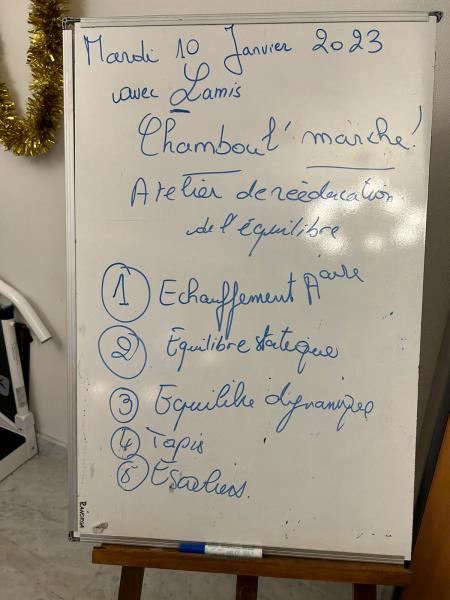 Mardi 10 Janvier 2023
avec Lamis
Chamboul' marche!
Atelier de rééducation
de l'équilibre
1 Echauffement
2 Équilibre statique
3 Equilibre dynamique
4 Tapis
5 Escaliers.